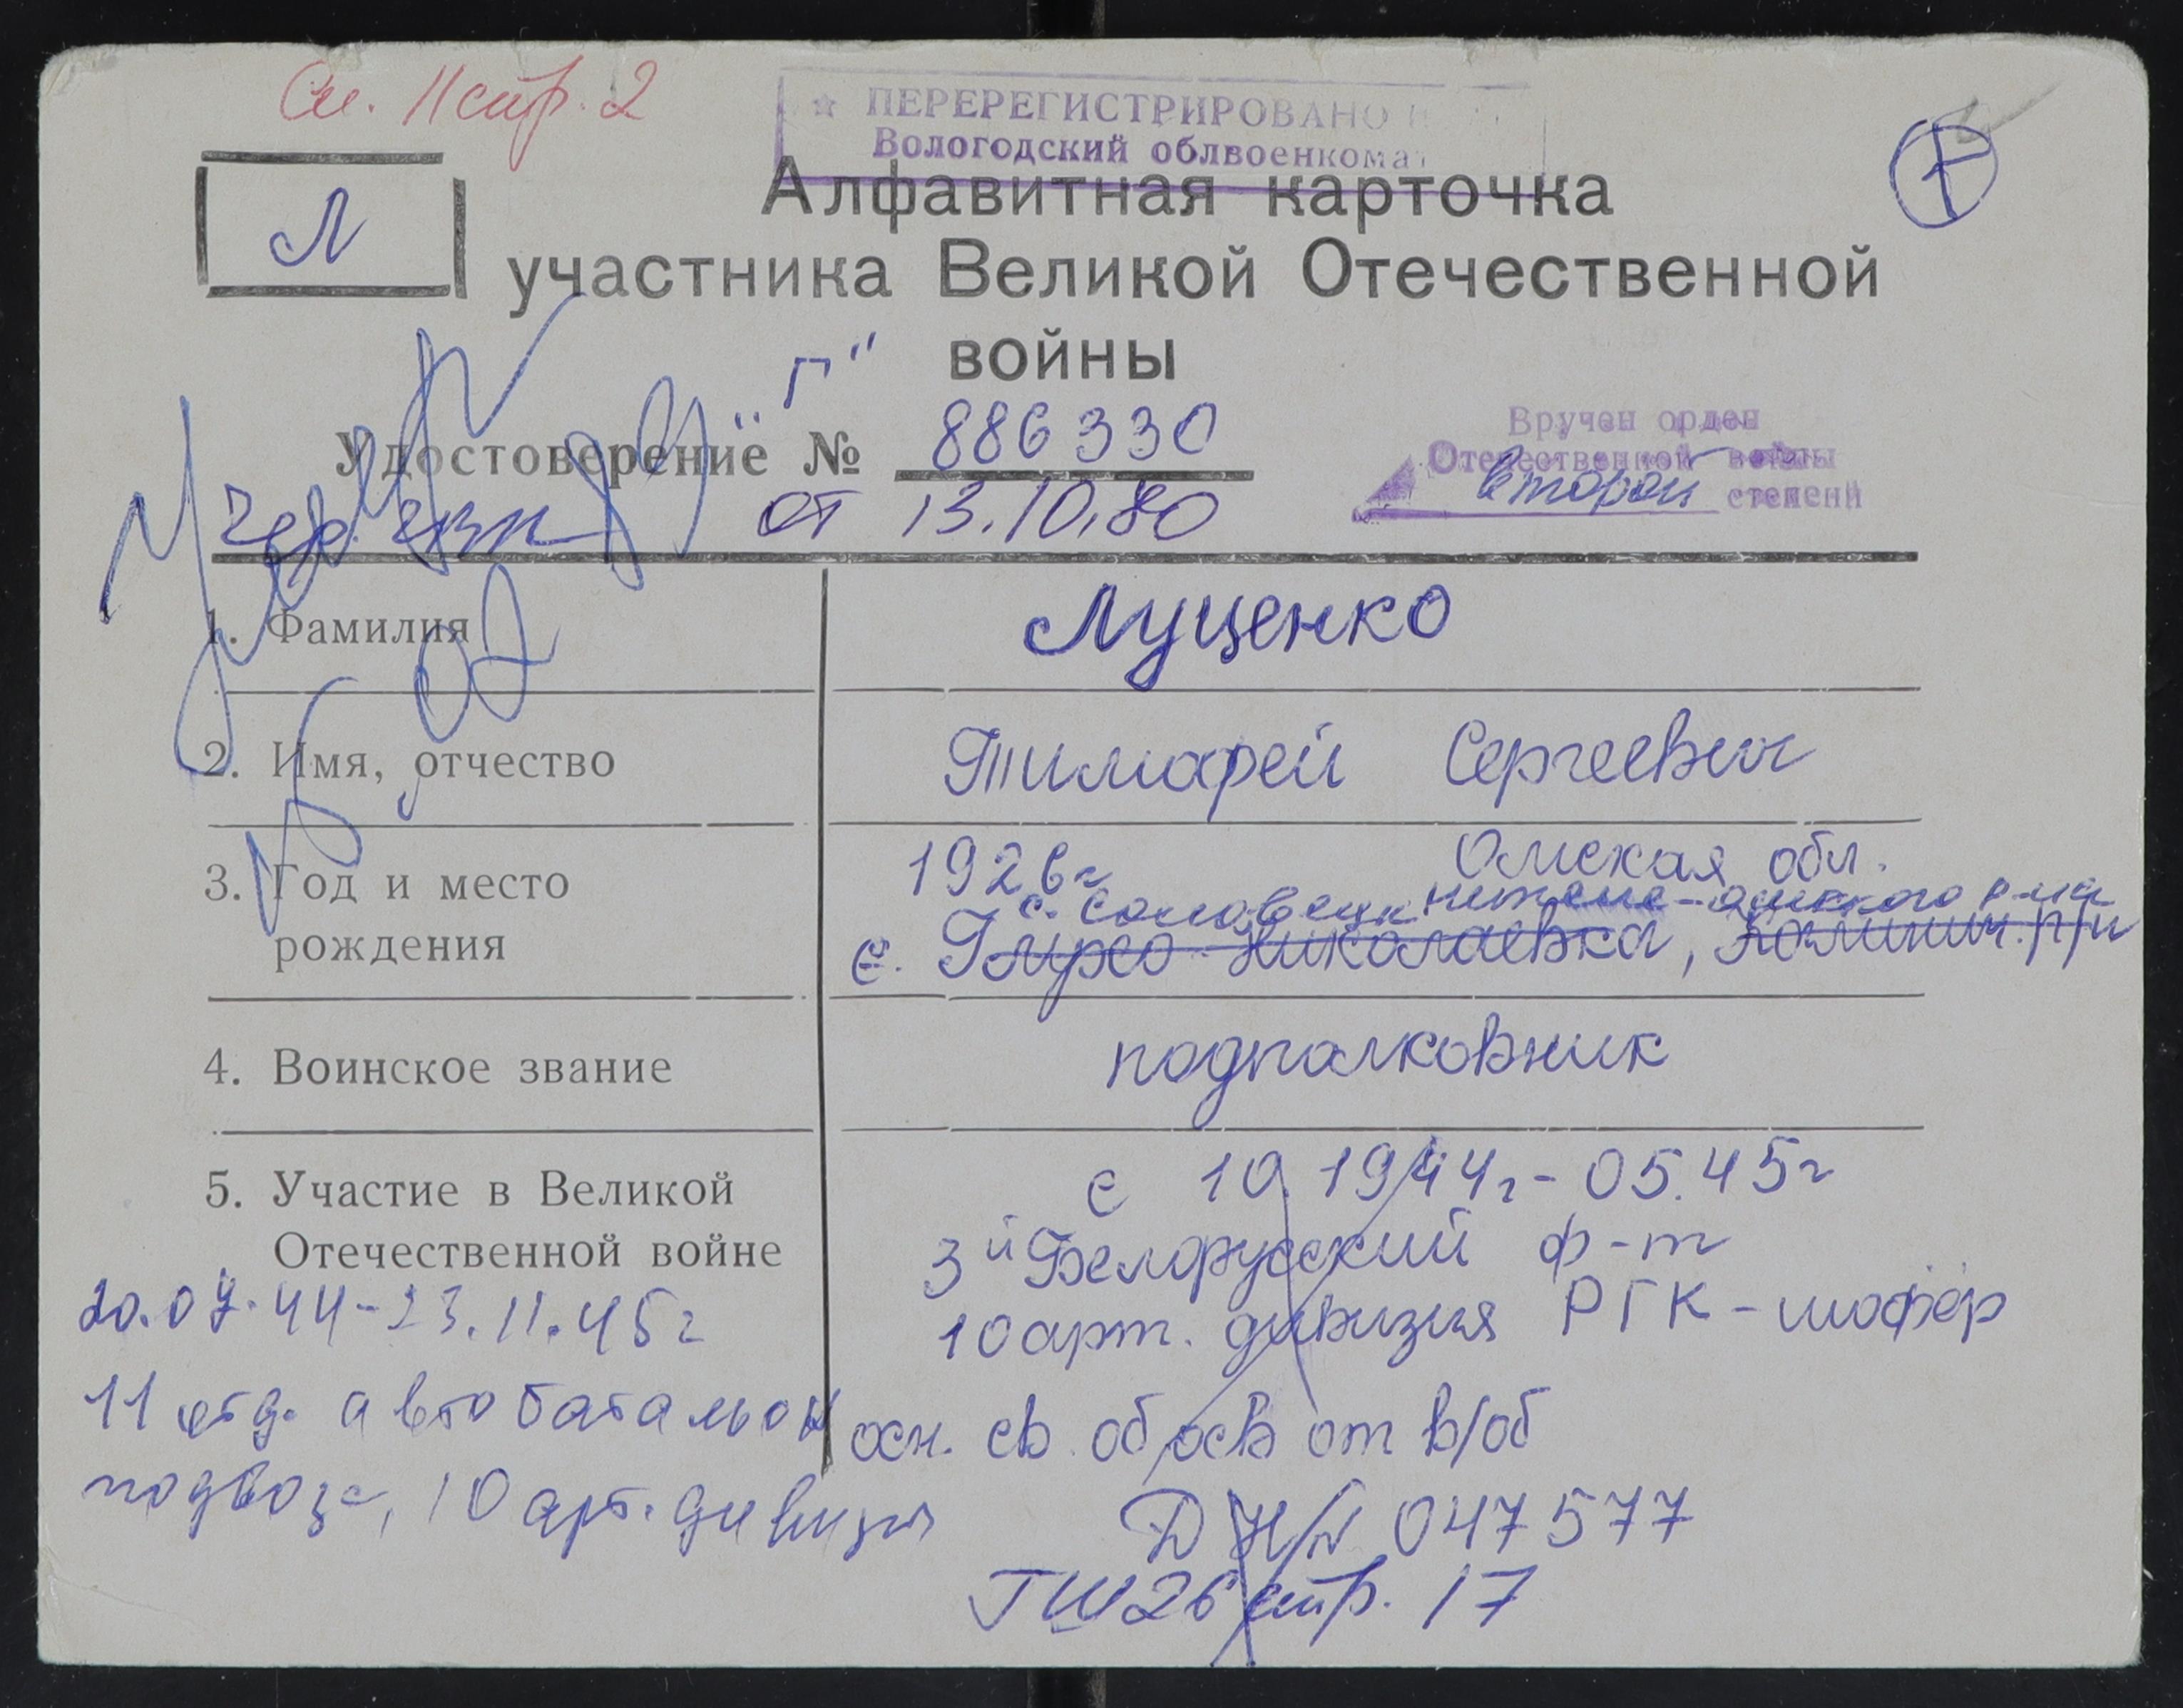 См. 11 стр. 2
☆ ПЕРЕРЕГИСТРИРОВАНО
Вологодский облвоенкомат
Л
Алфавитная карточка
участника Великой Отечественной
войны
"Г"
Удостоверение № 886330
от 13.10.80
Вручен орден
Отечественной войны
второй степени
1. Фамилия Луценко
2. Имя, отчество Тимофей Сергеевич
3. Год и место рождения 1926г Омская обл.
с.
Николаевка,
4. Воинское звание подполковник
5. Участие в Великой Отечественной войне
с 10.1944г - 05.45г
3й Белорусский ф-т
10 арт. дивизия РГК - шофёр
осн. св. об осв от в/об
047577
стр. 17
20.07.44-23.11.45г
11 отд. автобатальон
подвоза, 10 арт. дивизия